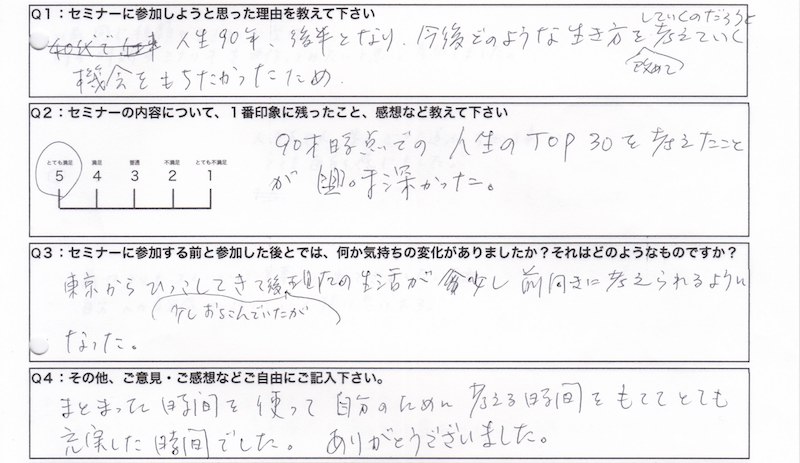 Q1：セミナーに参加しようと思った理由を教えて下さい
していくのだろうと
人生90年、後半となり、今後どのような生き方を考えていく
改めて
機会をもちたかったため.
Q2：セミナーの内容について、1番印象に残ったこと、感想など教えて下さい
とても満足 満足 普通 不満足 とても不満足
5 4 3 2 1
90才時点での 人生のTOP 30を考えたこと
が 興味深かった。
Q3：セミナーに参加する前と参加した後とでは、何か気持ちの変化がありましたか？それはどのようなものですか？
東京からひっこしてきて後、現在の生活が 少し 前向きに考えられるように
少しおちこんでいたが
なった。
Q4：その他、ご意見・ご感想などご自由にご記入下さい。
まとまった時間を使って 自分のために 考える時間をもててとても
充実した時間でした。 ありがとうございました。